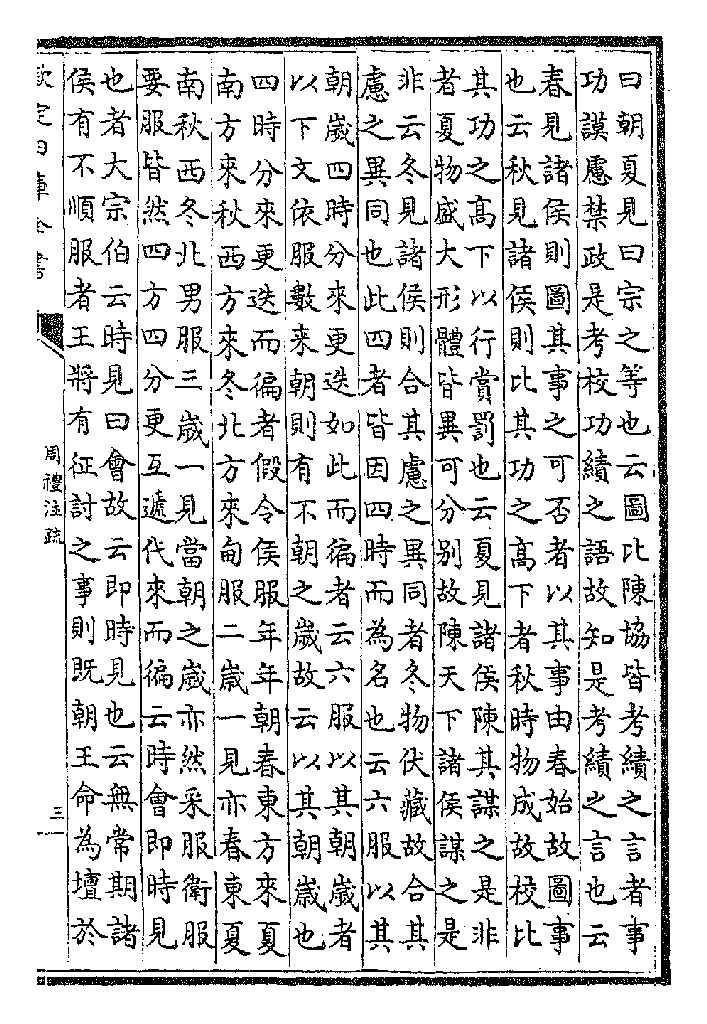 曰朝夏見曰宗之等也云圖比陳協皆考績之言者事
功謨慮禁政是考校功績之語故知是考績之言也云
春見諸侯則圖其事之可否者以其事由春始故圖事
也云秋見諸侯則比其功之高下者秋時物成故校比
其功之高下以行賞罰也云夏見諸侯陳其謀之是非
者夏物盛大形體皆異可分別故陳天下諸侯謀之是
非云冬見諸侯則合其慮之異同者冬物伏藏故合其
慮之異同也此四者皆因四時而為名也云六服以其
朝歲四時分來更迭如此而徧者云六服以其朝歲者
以下文依服數来朝則有不朝之歲故云以其朝歲也
四時分來更迭而徧者假令侯服年年朝春東方來夏
南方來秋西方來冬北方來甸服二歲一見亦春東夏
南秋西冬北男服三歲一見當朝之歲亦然采服衛服
要服皆然四方四分更互遞代來而徧云時會即時見
也者大宗伯云時見曰會故云即時見也云無常期諸
侯有不順服者王將有征討之事則既朝王命為壇於
欽定四庫全書
周禮注疏
三